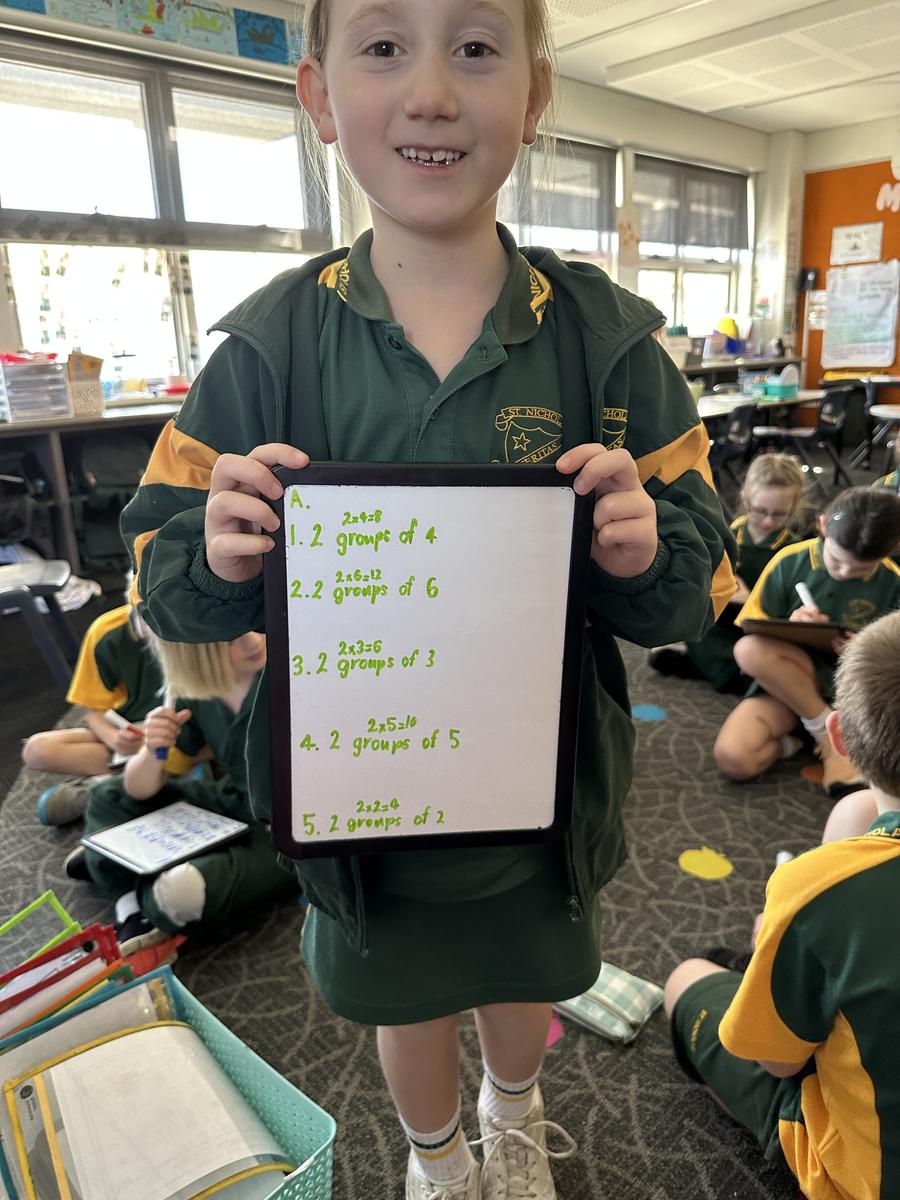 ST. NICHOL
VERITAS
A.
2x4=8
1. 2 groups of 4
2x6=12
2. 2 groups of 6
2x3=6
3. 2 groups of 3
2x5=10
4. 2 groups of 5
2x2=4
5. 2 groups of 2